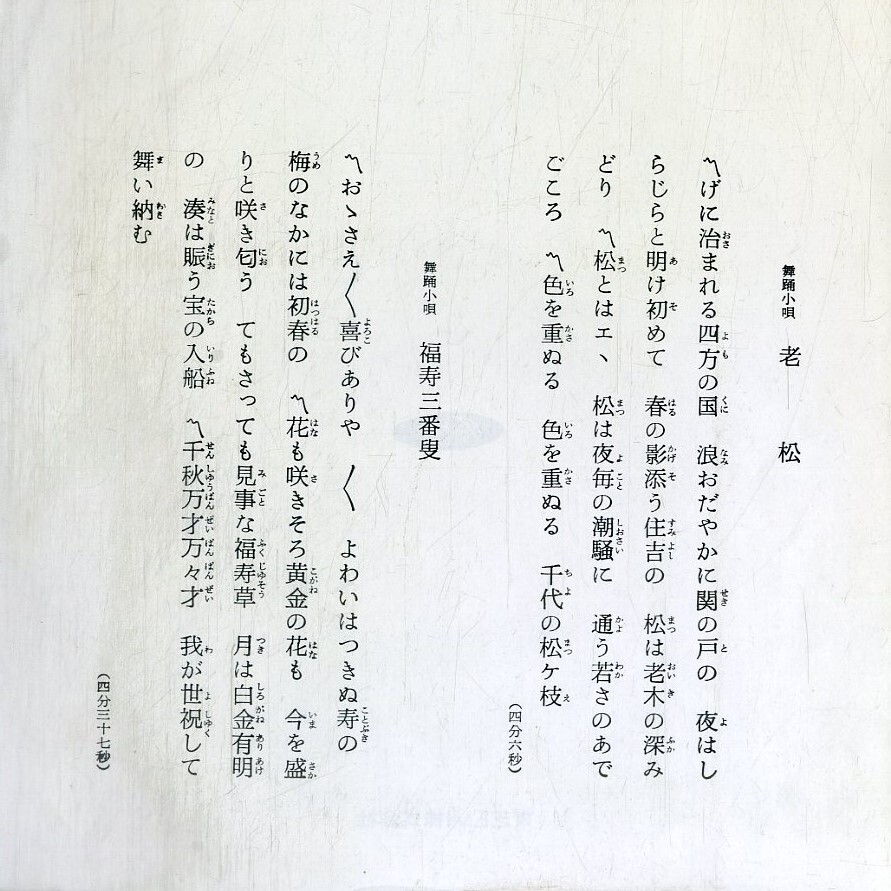 舞踊小唄 老松
〽げに治まれる四方の国 浪おだやかに関の戸の 夜はし
らじらと明け初めて 春の影添う住吉の 松は老木の深み
どり 〽松とはエヽ 松は夜毎の潮騒に 通う若さのあで
ごころ 〽色を重ぬる 色を重ぬる 千代の松ケ枝
(四分六秒)
舞踊小唄 福寿三番叟
〽おゝさえ〳〵喜びありや 〳〵 よわいはつきぬ寿の
梅のなかには初春の 〽花も咲きそろ黄金の花も 今を盛
りと咲き匂う てもさっても見事な福寿草 月は白金有明
の 湊は賑う宝の入船 〽千秋万才万々才 我が世祝して
舞い納む
(四分三十七秒)